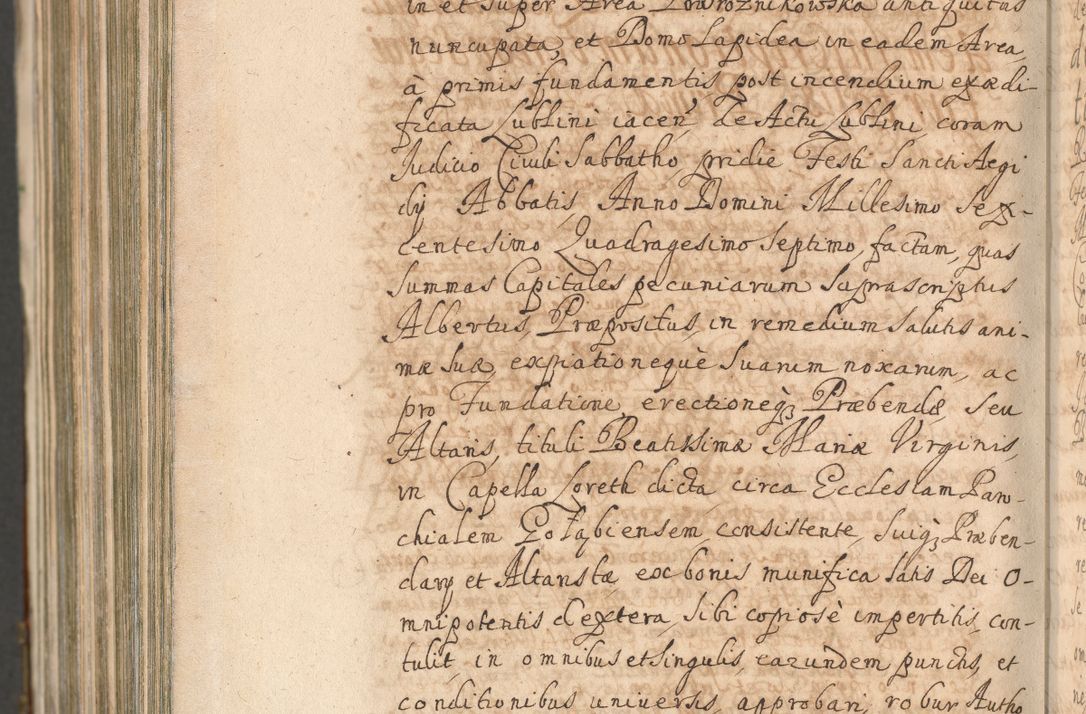 in et super Area Powroznikowska antiquitus
nuncupata, et Domo Lapidea in eadem Area,
à primis fundamentis post incendium exædi-
ficata Lublini iacen, de Actu Lublini coram
Judicio Civili Sabbatho, pridie Festi Sancti Aegi
dij Abbatis, Anno Domini Millesimo Sex-
centesimo Quadragesimo Septimo, factam, quas
Summas Capitales pecuniarum Suprascriptus
Albertus, Præpositus, in remedium Salutis ani-
mæ Suæ, expiationequè Suarum noxarum, ac
pro Fundatione, erectioneq; Præbendæ, Seu
Altaris, tituli Beatissimæ Mariæ Virginis,
in Capella Loreth dicta circa Ecclesiam Paro-
chialem Gołąbiensem, consistente, Suiq; Præben-
darij et Altaristæ, ex bonis munifica Satis Dei O-
mnipotentis dextera, Sibi copiosè impertitis, con-
tulit, in omnibus et Singulis, earundem punctis, et
conditionibus universis, approbari, robur Autho